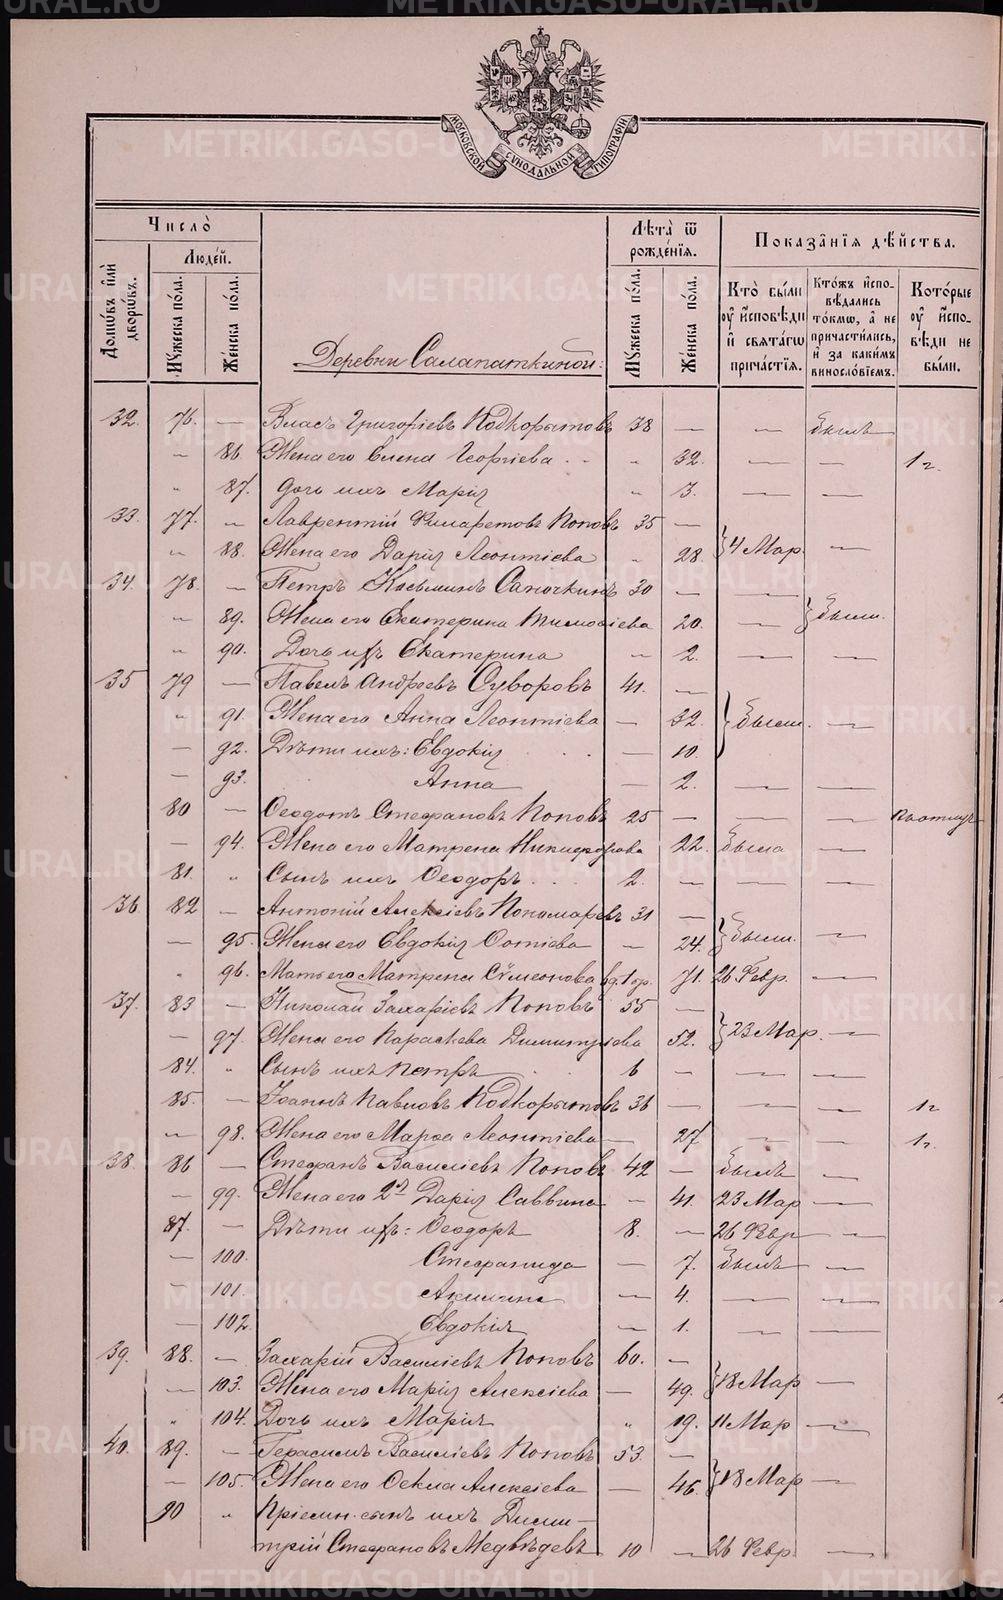 METRIKI.GASO-URAL.RU
МОСКОВСКОЙ СѴНОДАЛЬНОЙ ТИПОГРАФІИ
Число̀
Людє́й.
Домѡ́въ и҆лѝ дворѡ́въ.
Мꙋ́жеска по́ла.
Же́нска по́ла.
Деревни Салапаткиной:
Лѣ́та ѿ рожде́нїѧ.
Мꙋ́жеска по́ла.
Же́нска по́ла.
Показа̑нїѧ дѣ́йства.
Кто̀ бы́ли оу҆ и҆сповѣ́ди и҆ свѧта́гѡ прича́стїѧ.
Кто́жъ и҆спо-вѣ́дались то́кмѡ, а҆ не причасти́лись, и҆ за каки́мъ винослові́емъ.
Кото́рые оу҆ и҆спо-вѣди не бы́ли.
32. 76. — Власъ Григоріевъ Подкорытовъ 38 — — былъ
" 86. Жена его Елена Георгіева " 32. — — 1 г.
" 87. Дочь ихъ Марія " 3. — —
33. 77. " Лаврентій Филаретовъ Поповъ 35 —
" 88. Жена его Дарія Леонтіева " 28. } 4 Мар. —
34. 78. — Петръ Косьминъ Сапочкинъ 30 — —
" 89. Жена его Екатерина Тимоѳіева 20. — } были.
" 90. Дочь ихъ Екатерина " 2. — —
35 79 — Павелъ Андреевъ Суворовъ 41. —
" 91. Жена его Анна Леонтіева — 32. } были. —
— 92. Дѣти ихъ: Евдокія — 10.
— 93. Анна — 2. — —
80 — Ѳеодотъ Стефановъ Поповъ 25 — — —
— 94. Жена его Матрена Никифорова 22. была —
81. " Сынъ ихъ Ѳеодоръ 2. — — —
36 82 — Антоній Алексіевъ Пономаревъ 31 —
— 95. Жена его Евдокія Фотіева — 24. } были. —
" 96. Мать его Матрена Сѵмеонова 71. 26 Февр. —
37. 83 — Николай Захаріевъ Поповъ 55 —
— 97. Жена его Параскева Димитріева 52. } 23 Мар. —
84. " Сынъ ихъ Петръ 6 — — —
85. — Іоаннъ Павловъ Подкорытовъ 36 — — — 1 г
" 98. Жена его Марѳа Леонтіева — 27 — — 1 г.
38. 86 — Стефанъ Василіевъ Поповъ 42 — былъ —
— 99. Жена его 2я Дарія Саввина — 41. 23 Мар —
87. — Дѣти ихъ: Ѳеодоръ 8. — 26 Февр —
— 100. Стефанида — 7. былъ —
— 101. Акилина — 4. — —
— 102. Евдокія — 1. — —
39. 88. — Захарій Василіевъ Поповъ 60. —
— 103. Жена его Марія Алексіева — 49. } 18 Мар —
" 104. Дочь ихъ Марія " 19. 11 Мар —
40. 89. — Герасимъ Василіевъ Поповъ 53. —
— 105. Жена его Ѳекла Алексіева — 46. } 18 Мар —
90 " Пріемн. сынъ ихъ Дими-
трій Стефановъ Медвѣдевъ 10 — 26 Февр. —